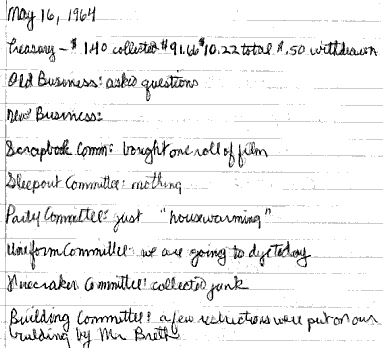 May 16, 1964
Treasury - $1.40 collected $91.66 $10.22 total $.50 withdrawn
Old Business: asked questions
New Business:
Scrapbook Comm: bought one roll of film
Sleepout Committee: nothing
Party Committee: just "housewarming"
Uniform Committee: we are going to dye today
Committee: collected junk
Building Committee: a few restrictions were put on our
building by Mr.